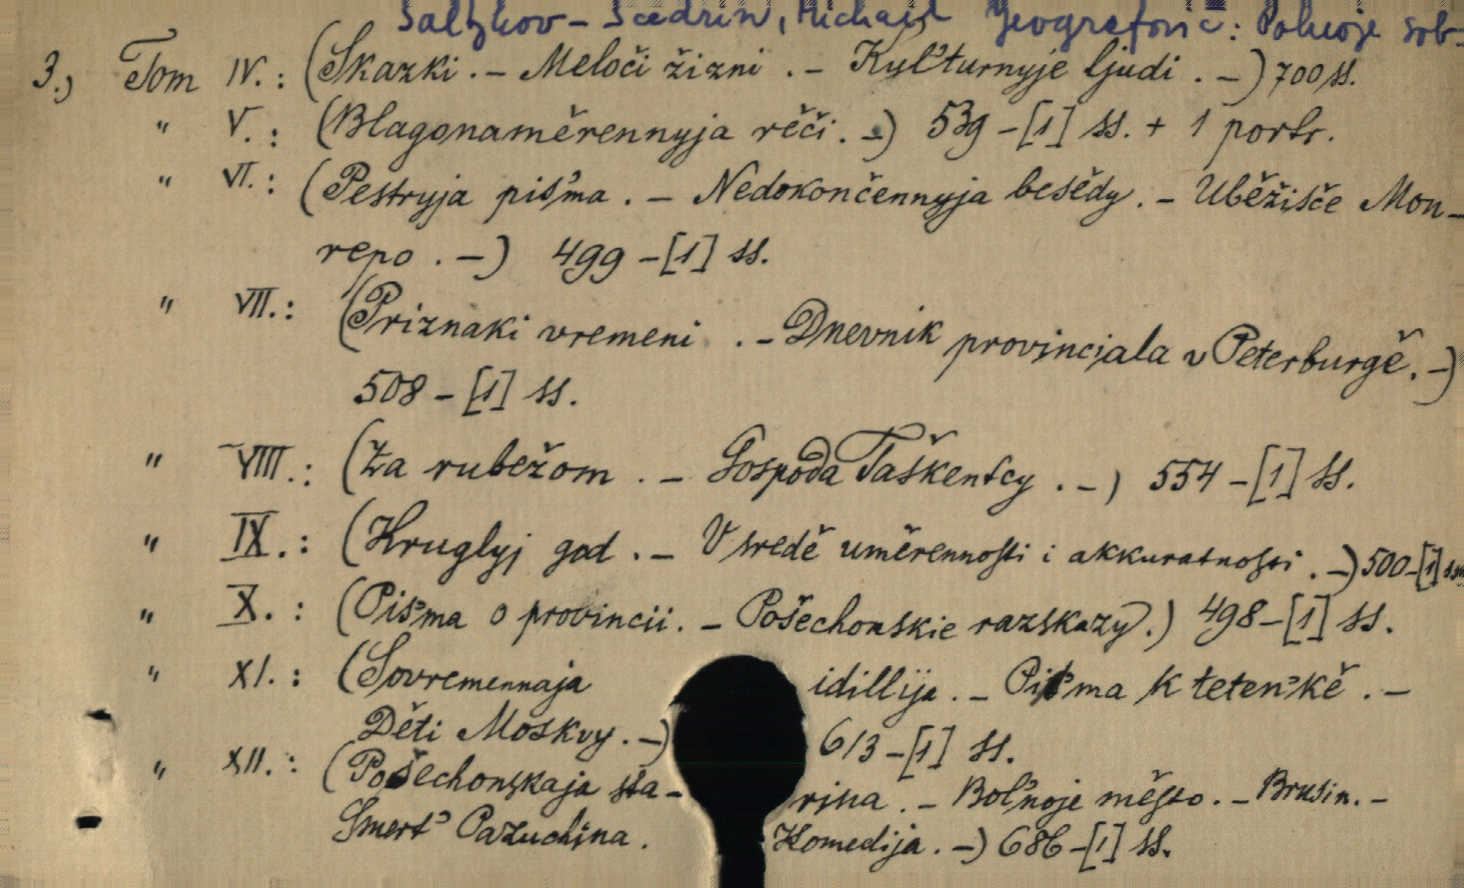 Saltykov-Ščedrin, Michail Jevgrafovič: Polnoje sob-
3.) Tom IV.: (Skazki. - Meloči žizni. - Kul'turnyje ljudi. -) 700 ss.
" V.: (Blagonaměrennyja rěči. -) 539-[1] ss. + 1 portr.
" VI.: (Pestryja piśma. - Nedokončennyja besědy. - Uběžišče Mon-
repo. -) 499-[1] ss.
" VII.: (Priznaki vremeni. - Dnevnik provincjala v Peterburgě. -)
508-[1] ss.
" VIII.: (Za rubežom. - Gospoda Taškentcy. -) 554-[1] ss.
" IX.: (Kruglyj god. - V sredě uměrennosti i akkuratnosti. -) 500-[1] ss.
" X.: (Piśma o provincii. - Pošechonskie razskazy.) 498-[1] ss.
" XI.: (Sovremennaja idillija. - Piśma k teten'kě. -
Děti Moskvy. -) 613-[1] ss.
" XII.: (Pošechonskaja sta-rina. - Bol'noje město. - Brusin. -
Smert' Pazuchina. Komedija. -) 686-[1] ss.